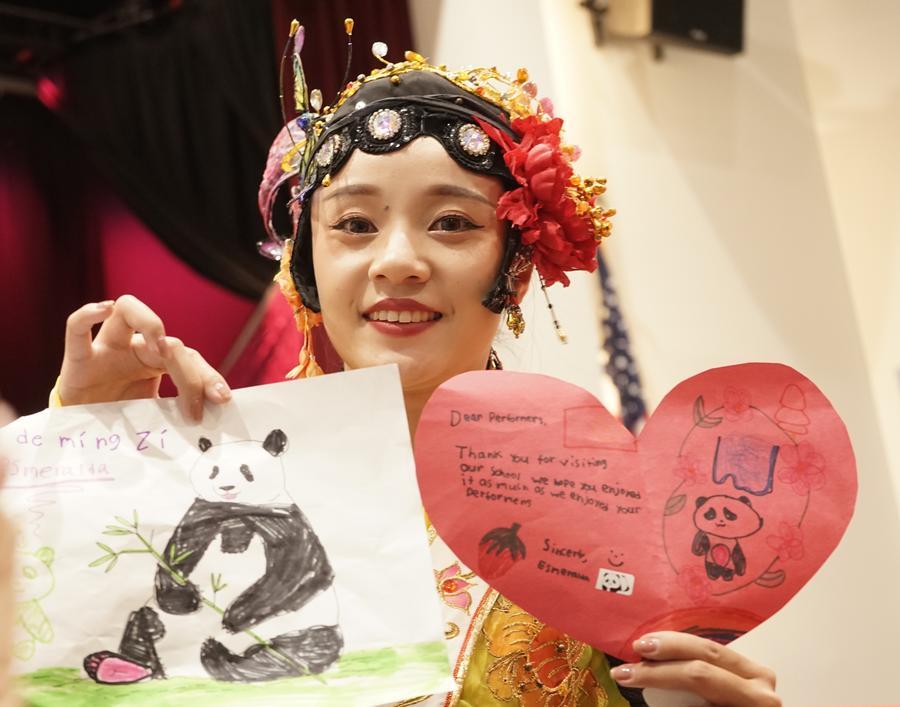 de míng Zì
Smeralda
Dear Performers,
Thank you for visiting
our school we hope you enjoyed
it as much as we enjoyed your
Performers
Sincerly
Esmeralda